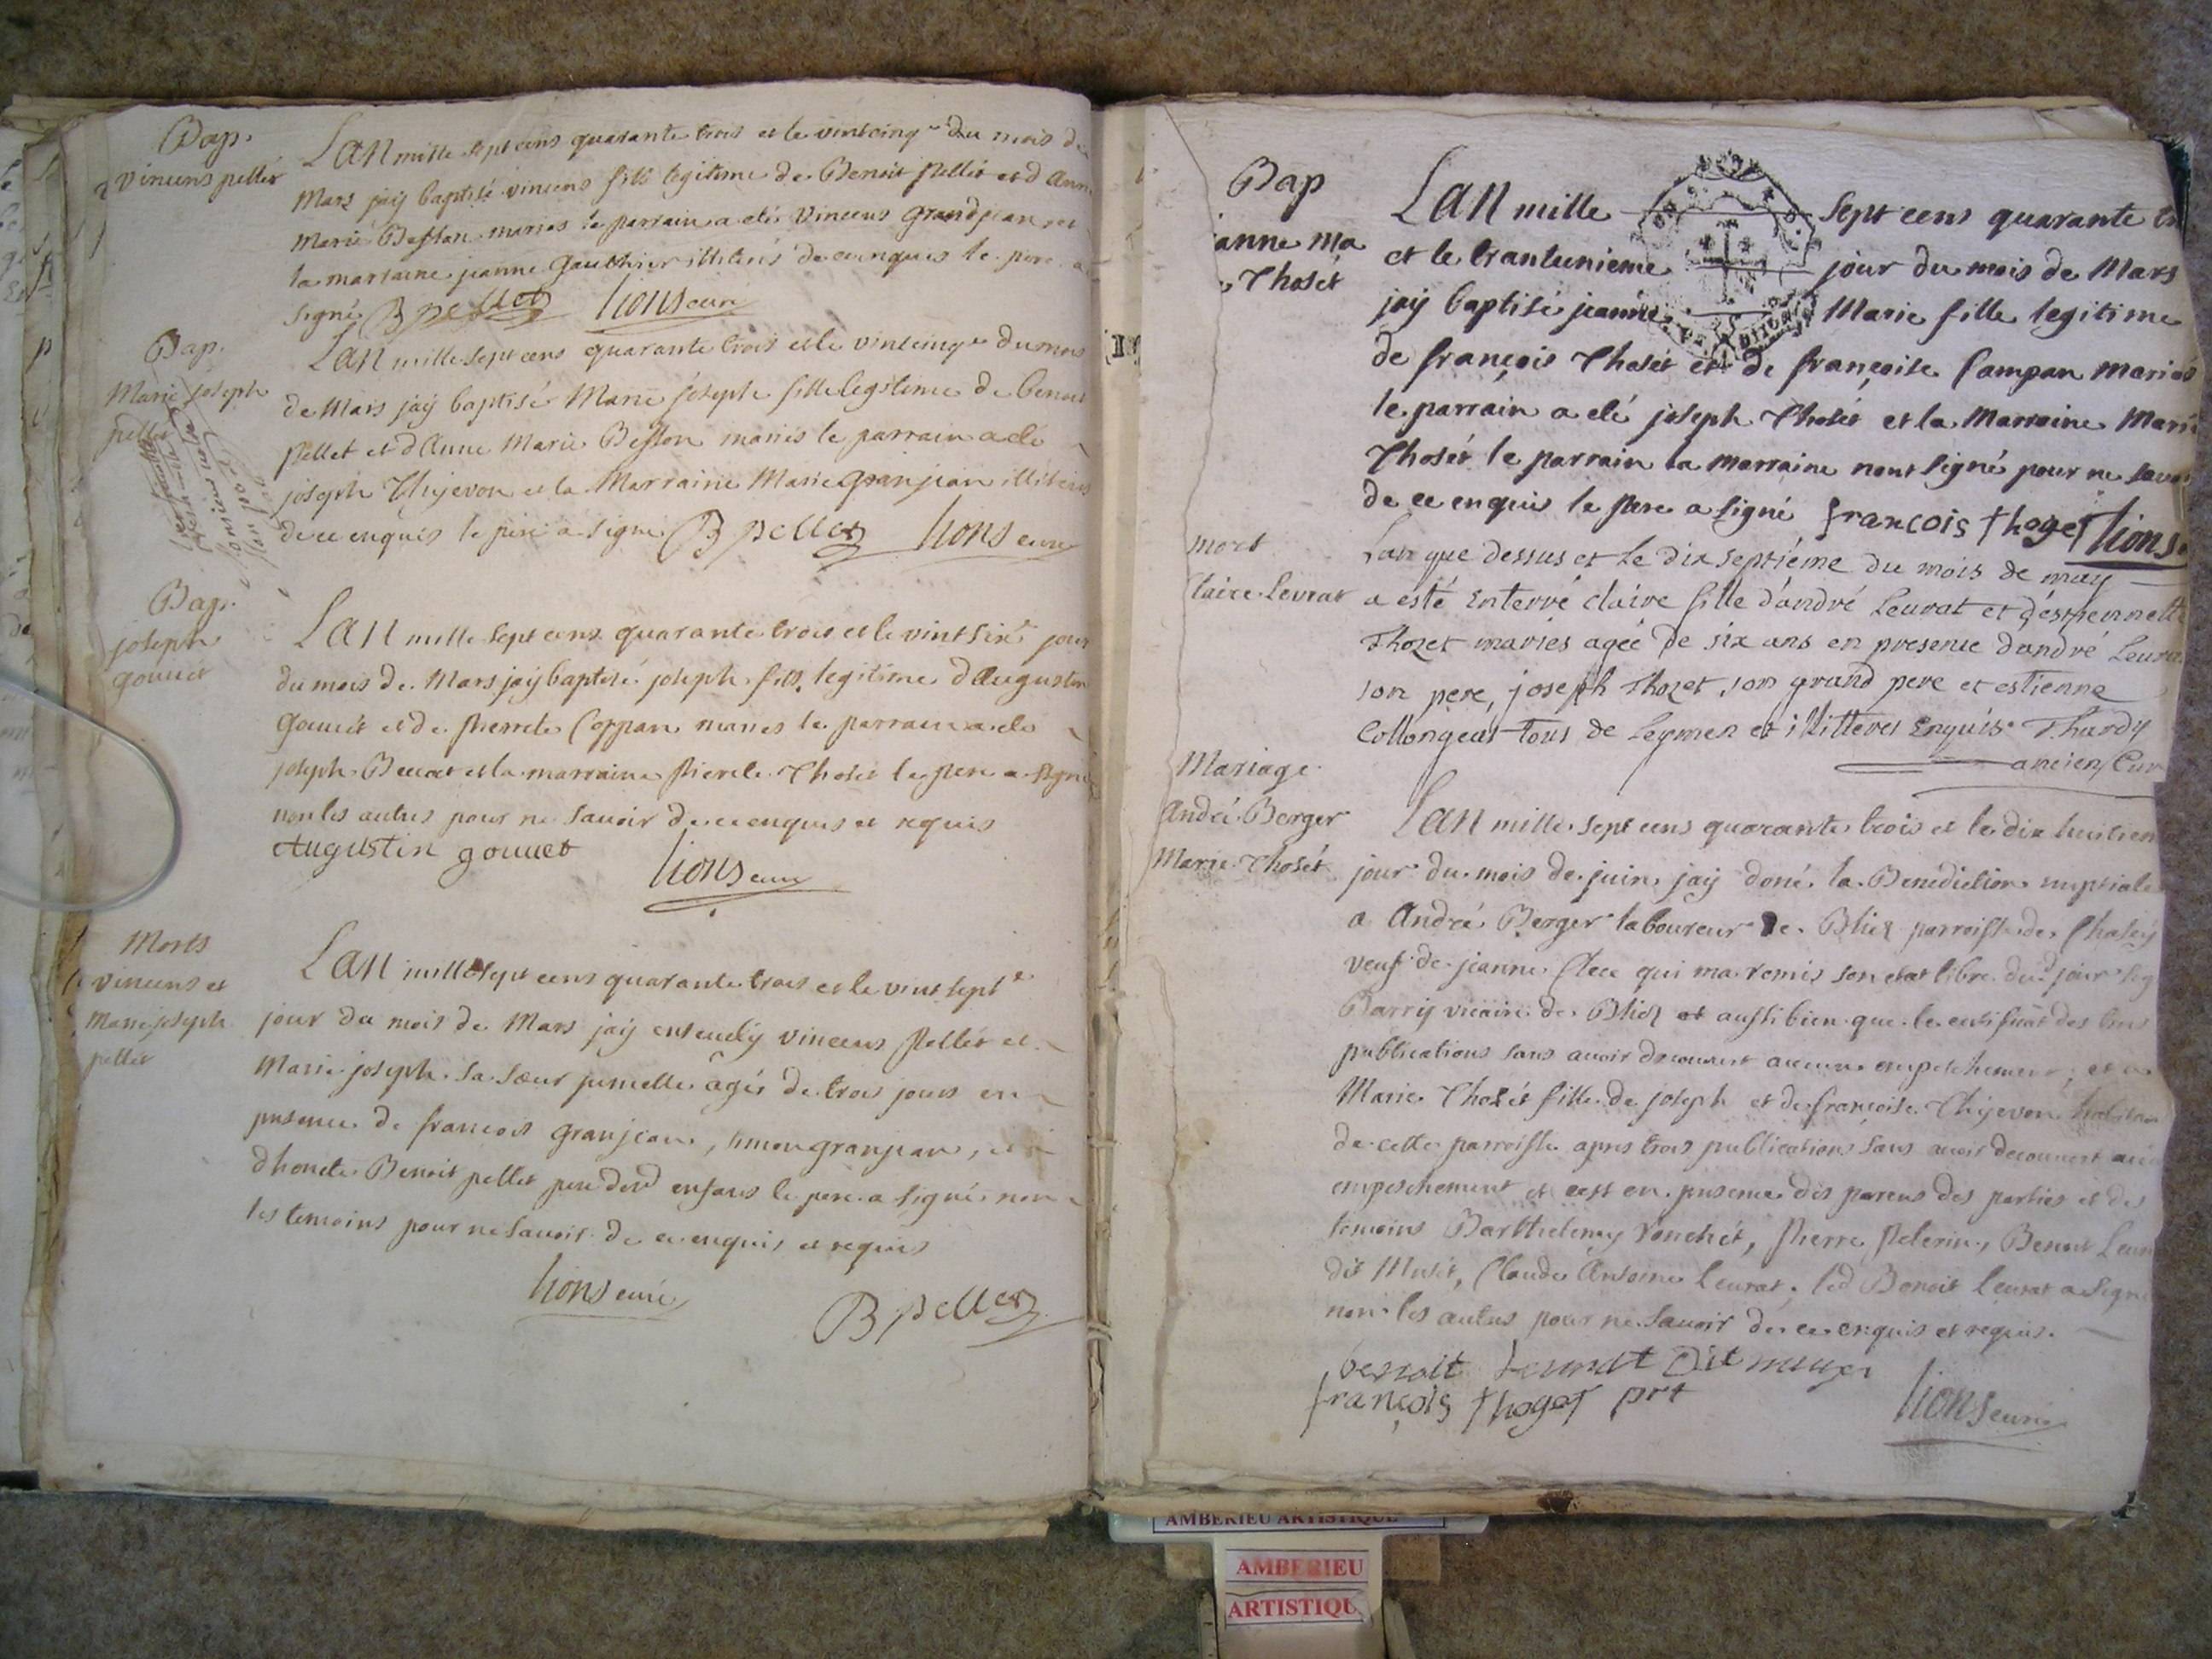 Bap.
vincens pellét
LAN mille sept cens quarante trois et le vintcinq.e du mois de
Mars jaÿ baptisé vincens fils legitime de Benoit pellét et d'Anne
Marie Besson mariés le parrain a eté Vincens Grandjean et
la marraine jeanne Gauthier illiterés de ce enquis le pere a
signé B pellet lions curé
Bap.
Marie joseph
pellét
LAN mille sept cens quarante trois et le vintcinq.e du mois
de Mars jaÿ baptisé Marie joseph fille legitime de benoit
pellet et d'Anne Marie Besson mariés le parrain a eté
joseph Thijevon et la Marraine Marie granjean illiterés
de ce enquis le pere a signé B pellet lions curé
Bap.
joseph
gouuét
LAN mille sept cens quarante trois et le vintsix.e jour
du mois de Mars jaÿ baptisé joseph fils legitime d'Augustin
gouuét et de pierrete Coppan mariés le parrain a eté
joseph et la marraine pierete Thosét le pere a signé
non les autres pour ne sauoir de ce enquis et requis
Augustin gouuet lions curé
Morts
vincens et
marie joseph
pellét
LAN mille sept cens quarante trois et le vint sept.e
jour du mois de Mars jaÿ enseuely vincens pellét et
Marie joseph sa sœur jumelle agés de trois jours en
presence de francois granjean, simon granjean, et
d'honete Benoit pellet pere desd enfans le pere a signé non
les temoins pour ne sauoir de ce enquis et requis
lions curé B pellet
Bap
anne ma
Thosét
LAN mille sept cens quarante
et le trantunieme jour du mois de Mars
jaÿ baptisé jeanne Marie fille legitime
de françois Thosét et de françoise Campan mariés
le parrain a eté joseph Thosét et la Marraine Marie
Thosét le parrain la marraine nont signé pour ne sauoir
de ce enquis le pere a signé françois thoget lions
mort
Claire Levrat
Lan que dessus et le dix septiéme du mois de may
a esté enterré claire fille d'andré Leurat et d'estiennette
Thozet mariés agée de six ans en presence dandré Leurat
son pere, joseph Thozet, son grand pere et estienne
Collongeat tous de Leymen et illitterés enquis. Thardy
ancien Curé
Mariage
André Berger
Marie Thosét
LAN mille sept cens quarante trois et le dix huitieme
jour du mois de juin jaÿ doné la Benediction nuptiale
a André Berger laboureur de Bliez parroisse de Chaseÿ
veuf de jeanne qui ma remis son etat libre dud jour
Barrÿ vicaire de Bliez et aussi bien que le certificat des trois
publications sans auoir decouuert aucun empechement, et a
Marie Thosét fille de joseph et de françoise Thijevon
de cette parroisse apres trois publications sans auoir decouuert
empeschement et cest en presence des parens des parties et des
temoins Barthelemy Vonchét, pierre pelerin, Benoit Leurat
dit Musét, Claude Antoine leurat, led Benoit leurat a signé
non les autres pour ne sauoir de ce enquis et requis.
benoit leurat Dit
françois thoget prt lions curé
AMBERIEU ARTISTIQUE
AMBERIEU
ARTISTIQU